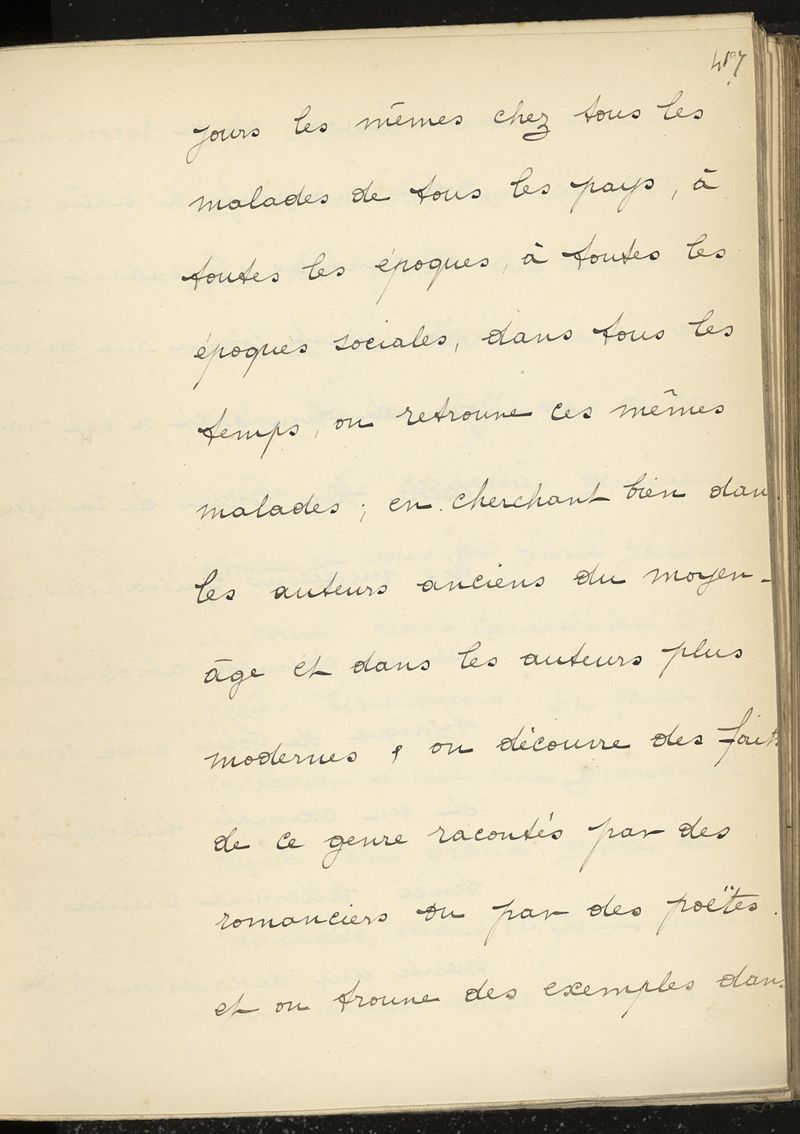 jours les mêmes chez tous les
malades de tous les pays, à
toutes les époques, à toutes les
époques sociales, dans tous les
temps, on retrouve ces mêmes
malades ; en cherchant bien dans
les auteurs anciens du moyen-
âge et dans les auteurs plus
modernes, on découvre des faits
de ce genre racontés par des
romanciers ou par des poëtes.
et on trouve des exemples dans